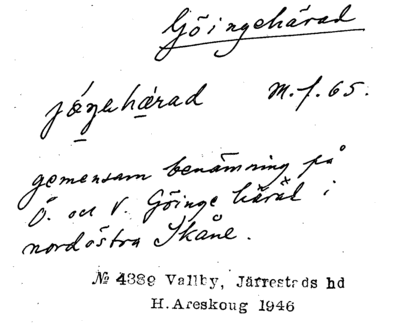 Göingehärad
jǿŋehärad m.f.65.
gemensam benämning på
Ö. och V. Göinge härad i
nordöstra Skåne.
№ 4389 Vallby, Järrestads hd
H. Areskoug 1946